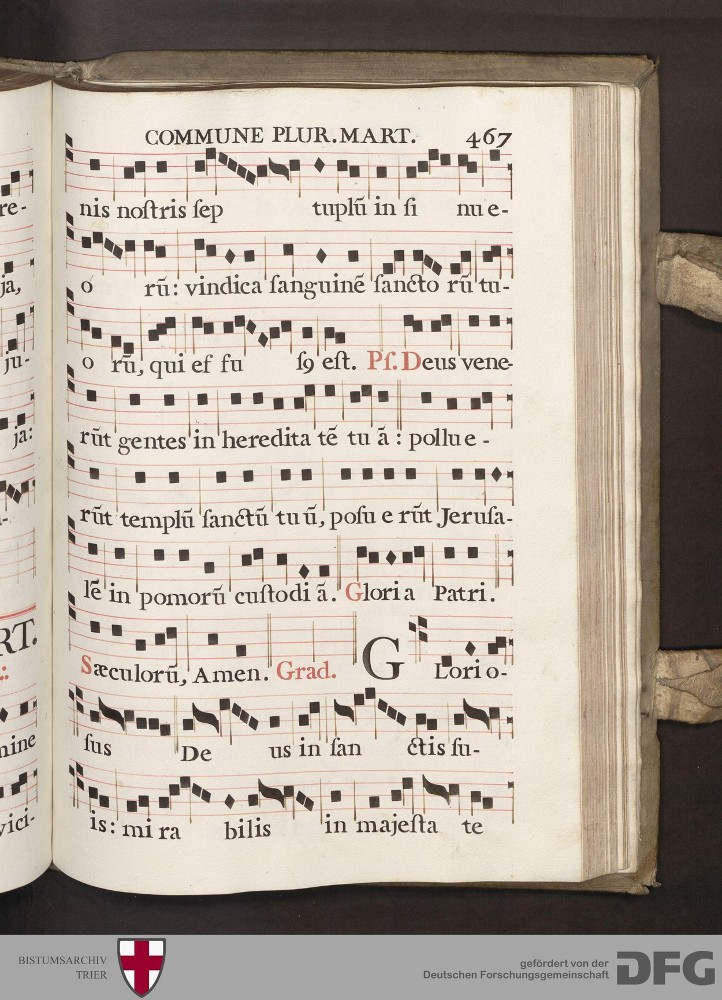 COMMUNE PLUR. MART. 467
re- nis noſtris ſep tuplū in ſi nu e-
ja, o rū: vindica ſanguinē ſancto rū tu-
ju- o rū, qui ef fu ſꝯ eſt. Pſ. Deus vene-
ja: rūt gentes in heredita tē tu ā: pollu e -
rūt templū ſanctū tu ū, poſu e rūt Jeruſa-
lē in pomorū cuſtodi ā. Gloria Patri.
RT. Sæculorū, Amen. Grad. G Lori o-
mine ſus De us in ſan ctis ſu-
vici- is: mi ra bilis in majeſta te
BISTUMSARCHIV
TRIER
gefördert von der
Deutschen Forschungsgemeinschaft
DFG